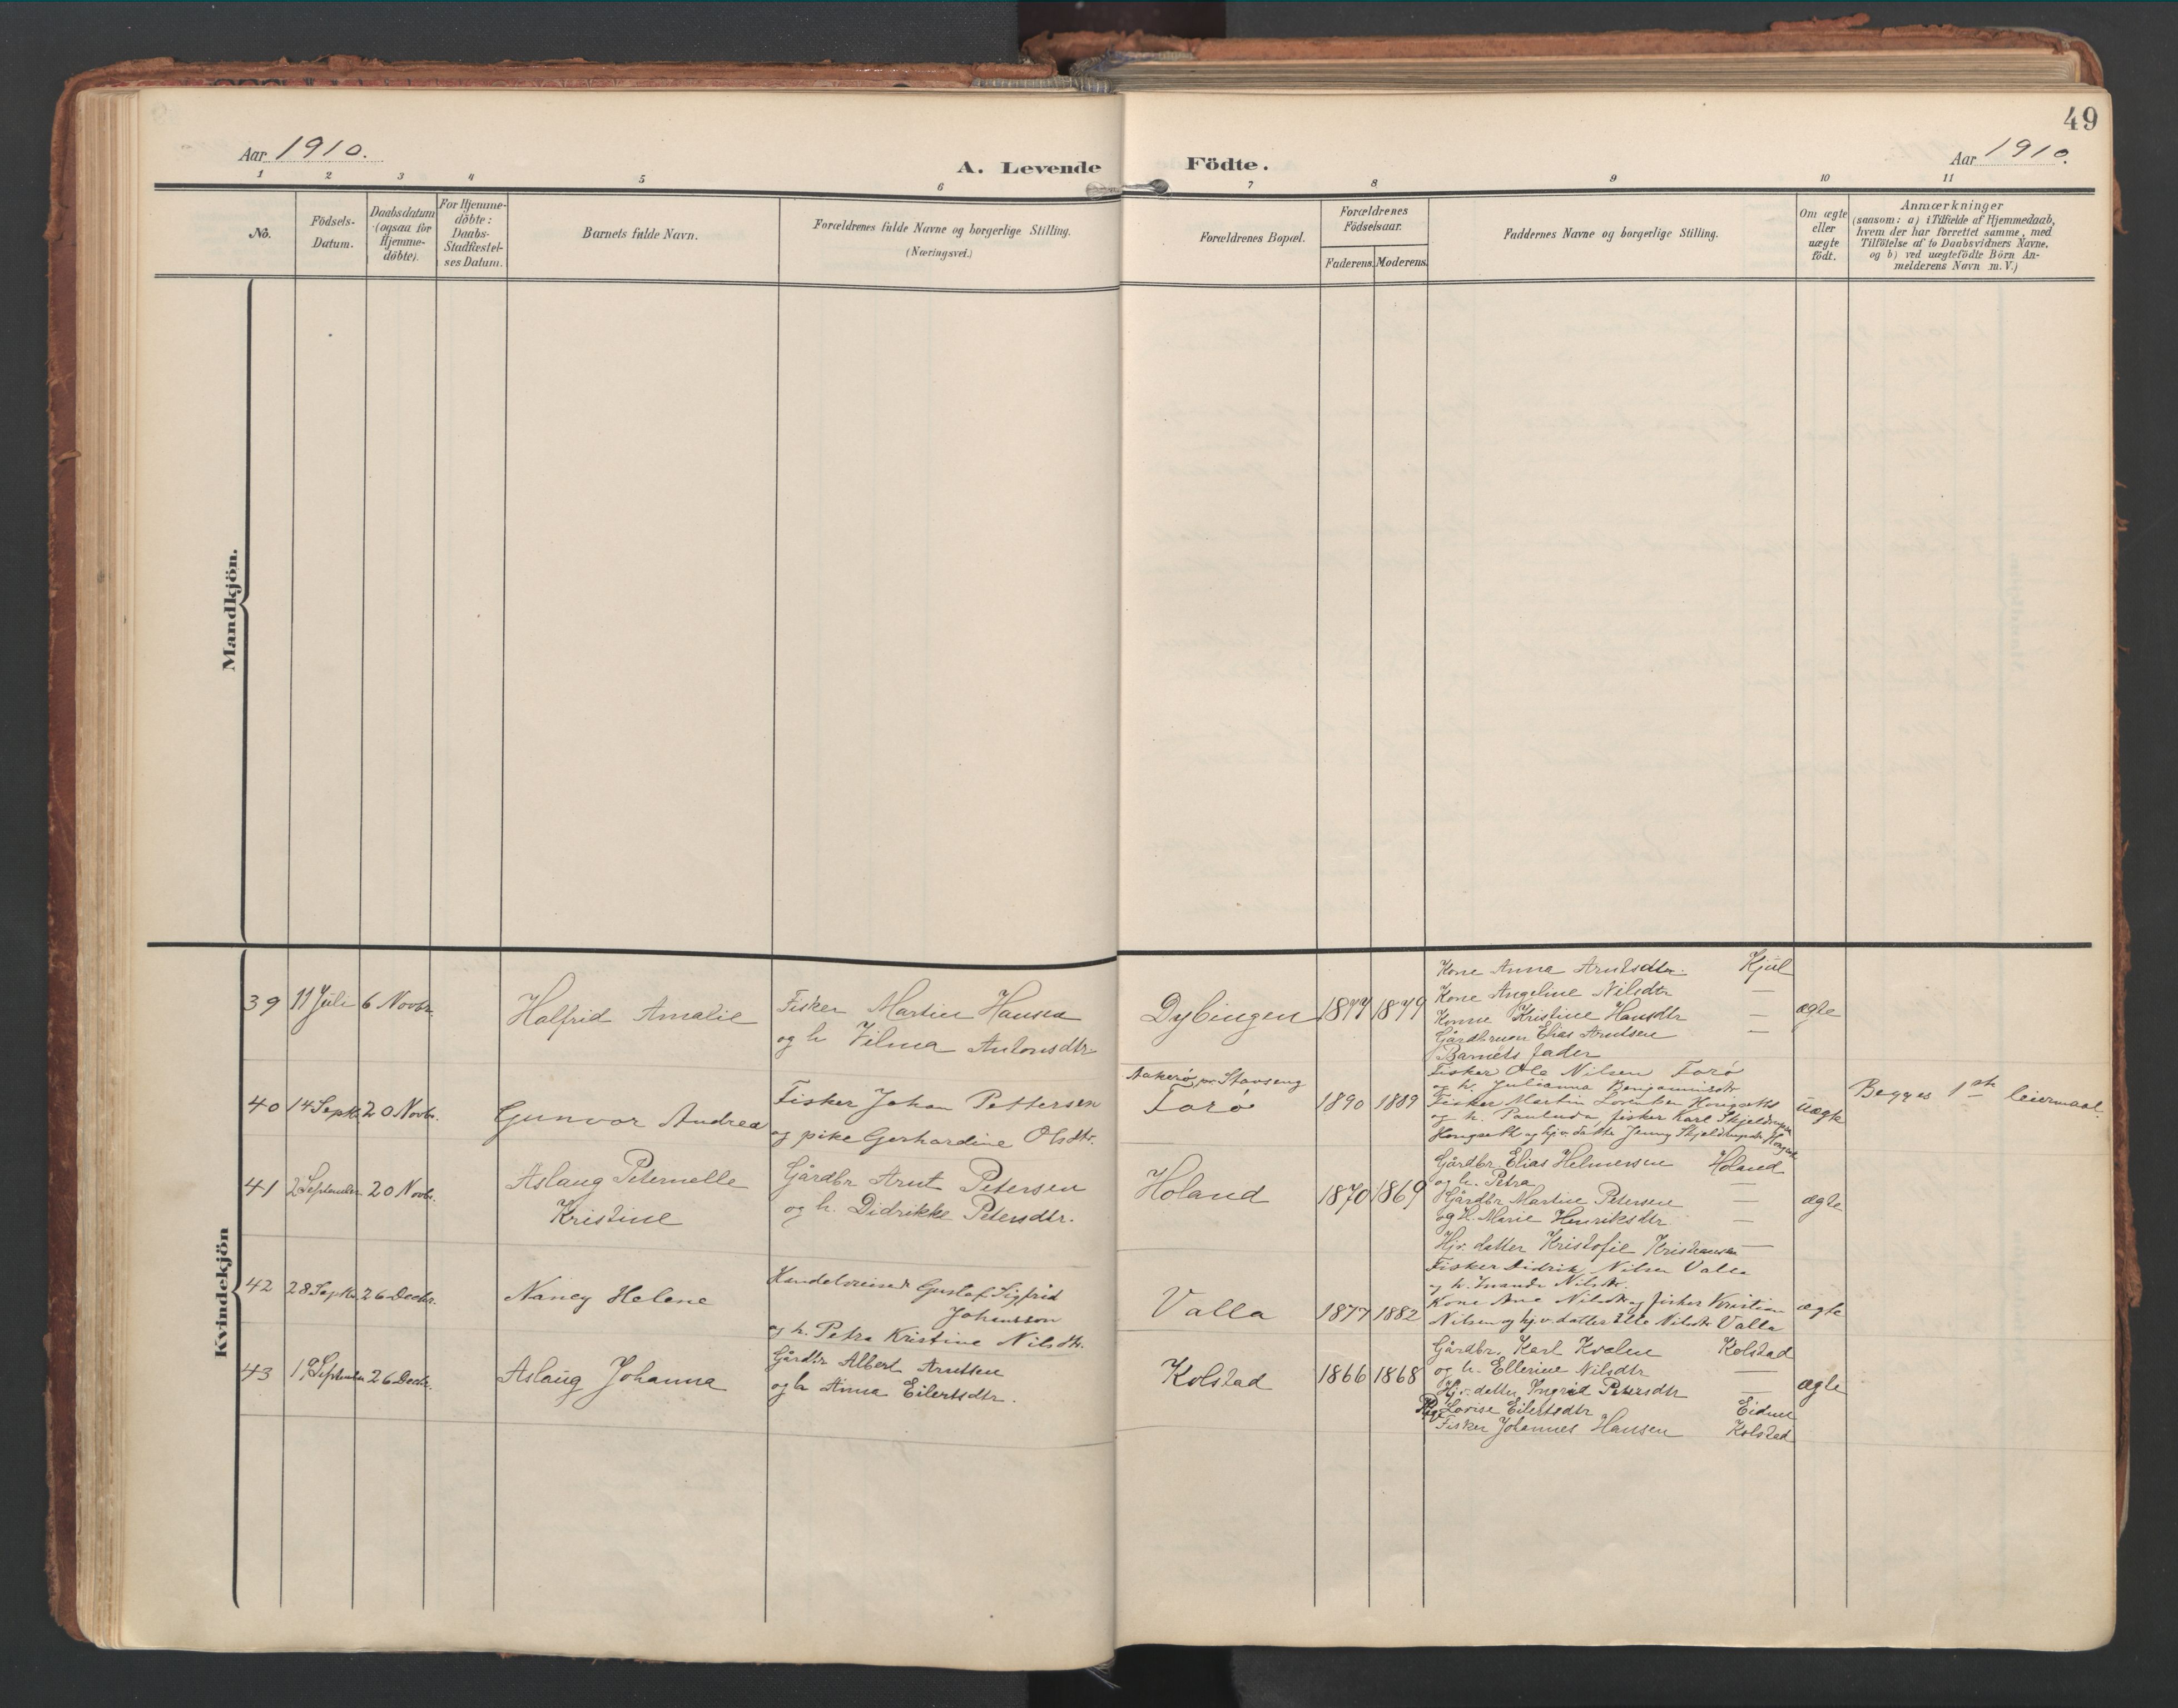 49
Aar 1910.
A. Levende Födte.
Aar 1910.
1 2 3 4 5 6 7 8 9 10 11
No.
Födsels-
Datum.
Daabsdatum
(ogsaa for
Hjemme-
döbte).
For Hjemme-
döbte:
Daabs-
Stadfæstel-
ses Datum.
Barnets fulde Navn.
Forældrenes fulde Navne og borgerlige Stilling.
(Næringsvei.)
Forældrenes Bopæl.
Forældrenes
Födselsaar.
Faderens. Moderens.
Faddernes Navne og borgerlige Stilling.
Om ægte
eller
uægte
födt.
Anmærkninger
(saasom: a) i Tilfælde af Hjemmedaab,
hvem der har forrettet samme, med
Tilföielse af to Daabsvidners Navne.
og b) ved uægtefödte Börn An-
melderens Navn m.V.)
Mandkjön.
Kvindekjön
39 11 Juli 6 Novbr.
Halfrid Amalie
Fisker Martin Hansen
og h Vilma Antonsdtr
Dybingen
1877 1879
Kone Anna Arntsdtr. Kjul
Kone Angeline Nilsdtr —
Konne Kristine Hansdtr —
Gårdbruger Elias Arntsen —
Barnets fader
ægte
40 14 Septbr. 20 Novbr.
Gunvor Andrea
Fisker Johan Pettersen
og pike Gerhardine Olsdtr.
Aakerø pr Stavseng
Torø
1890 1889
Fisker Ole Nilsen Torø
og h. Julianna Benjaminsdtr
Fisker Martin Lorentsen Hongseth
og h. Paulinda fisker Karl Skjeldrupsen
Hongseth og hjv. datter Jenny Skjeldrupsdtr Hongset
uægte
Begges 1ste leiermaal.
41 2 September 20 Novbr.
Aslaug Peternelle
Kristine
Gårdbr Arnt Petersen
og h. Didrikke Petersdtr.
Holand
1870 1869
Gårdbr. Elias Helmersen Holand
og h. Petra —
Gårdbr Martin Petersen —
og H. Marie Henriksdtr —
Hjv. datter Kristofie Kristiansen —
ægte
42 28 Septbr. 26 Decbr.
Nancy Helene
Handelsreisende Gustaf Sigfrid
Johansson
og h. Petra Kristine Nilsdtr.
Valla
1877 1882
Fisker Didrik Nilsen Valla
og h. Nilsdtr.
Kone Ane Nilsdtr og fisker Kristian
Nilsen og hjv. datter Ella Nilsdtr Valla
ægte
43 19 September 26 Decbr.
Aslaug Johanna
Gårdbr Albert Arntsen
og h Anna Eilertsdtr.
Kolstad
1866 1868
Gårdbr. Karl Kvalen Kolstad
og h. Ellerine Nilsdtr —
Hjv. datter Ingrid Petersdtr —
Pige Lovise Eilertsdtr Eidem
Fisker Johannes Hansen Kolstad
ægte